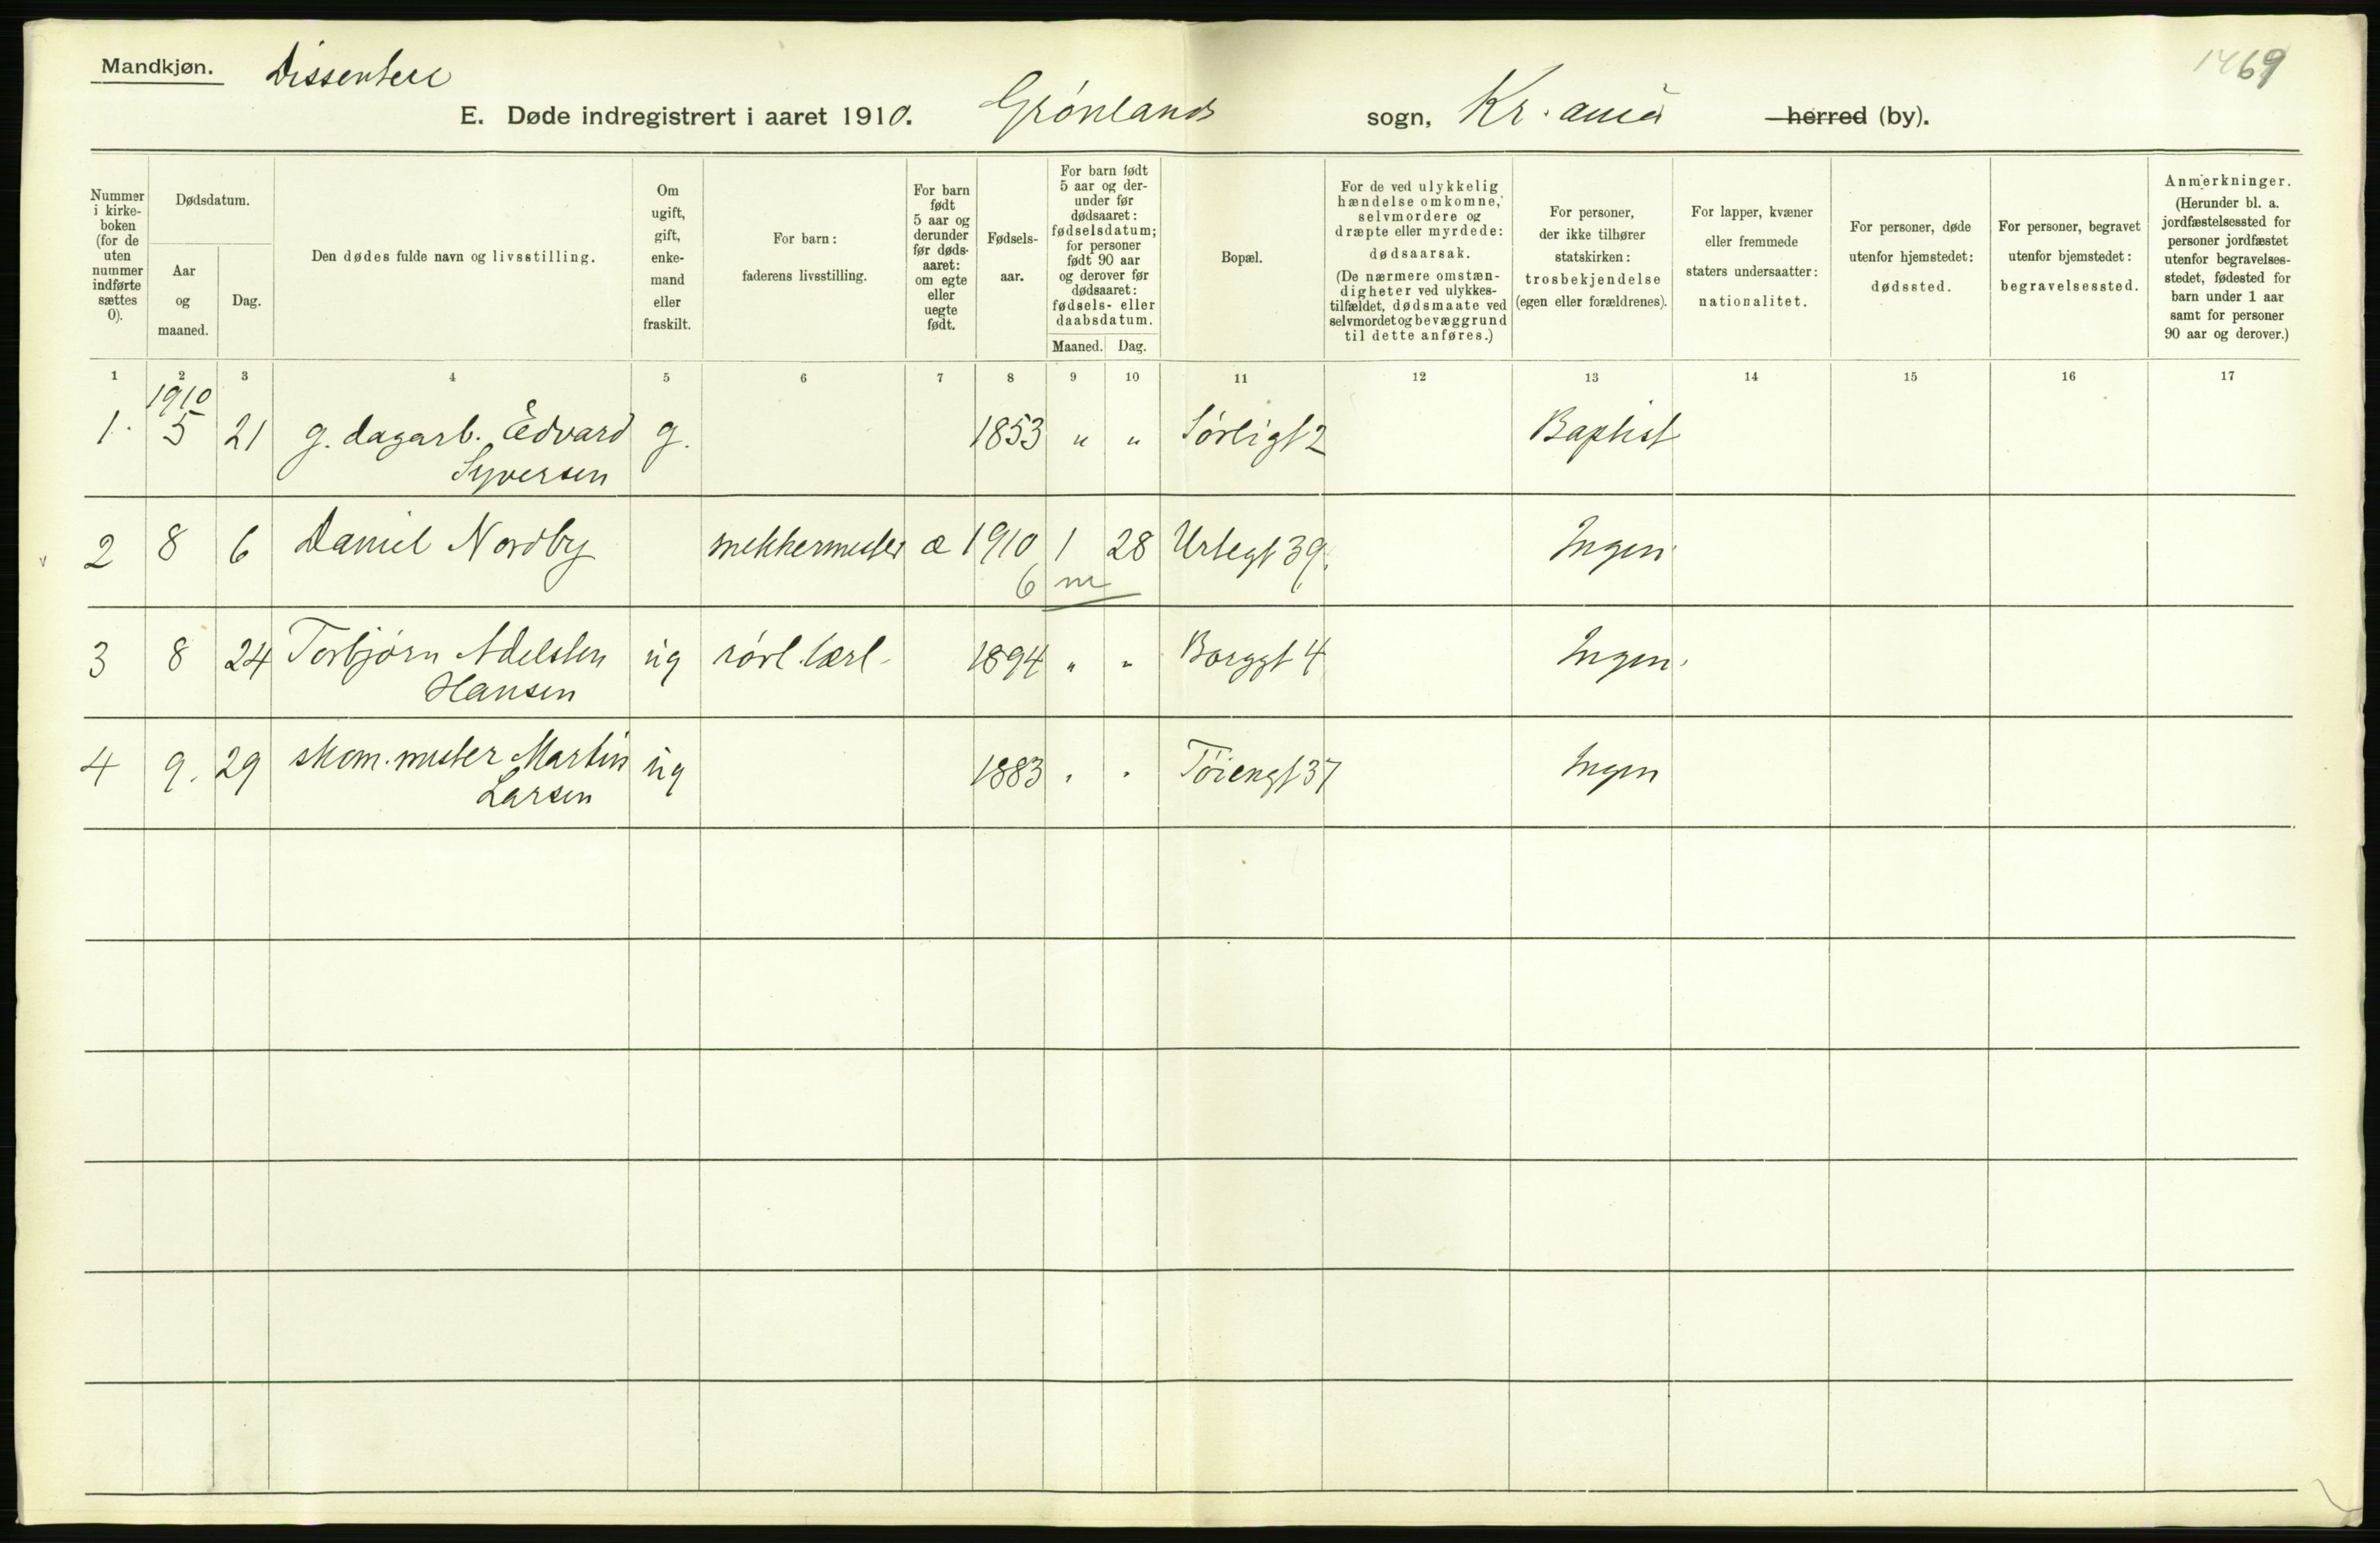 Mandkjøn. Dissentere
1469
E. Døde indregistrert i aaret 1910. Grønlands sogn, Kr.ania herred (by).
Nummer i kirkeboken (for de uten nummer indførte sættes 0).
Dødsdatum.
Aar og maaned.
Dag.
Den dødes fulde navn og livsstilling.
Om ugift, gift, enkemand eller fraskilt.
For barn: faderens livsstilling.
For barn født 5 aar og derunder før dødsaaret: om egte eller uegte født.
Fødselsaar.
For barn født 5 aar og derunder før dødsaaret: fødselsdatum; for personer født 90 aar og derover før dødsaaret: fødsels- eller daabsdatum.
Maaned. Dag.
Bopæl.
For de ved ulykkelig hændelse omkomne, selvmordere og dræpte eller myrdede: dødsaarsak. (De nærmere omstændigheter ved ulykkestilfældet, dødsmaate ved selvmordet og bevæggrund til dette anføres.)
For personer, der ikke tilhører statskirken: trosbekjendelse (egen eller forældrenes).
For lapper, kvæner eller fremmede staters undersaatter: nationalitet.
For personer, døde utenfor hjemstedet: dødssted.
For personer, begravet utenfor hjemstedet: begravelsessted.
Anmerkninger. (Herunder bl. a. jordfæstelsessted for personer jordfæstet utenfor begravelsesstedet, fødested for barn under 1 aar samt for personer 90 aar og derover.)
1 2 3 4 5 6 7 8 9 10 11 12 13 14 15 16 17
1910
1. 5 21 g. dagarb. Edvard g. 1853 " " Sørligt 2 Baptist
Syversen
2 8 6 Daniel Nordby æ 1910 1 28 Urtegt 39. Ingen
6 m
3 8 24 Torbjørn Adelsten ug rørl. lærl. 1894 " " Borggt 4 Ingen.
Hansen
4 9. 29 skom. mester Martin ug 1883 " " Tøiengt 37 Ingen
Larsen